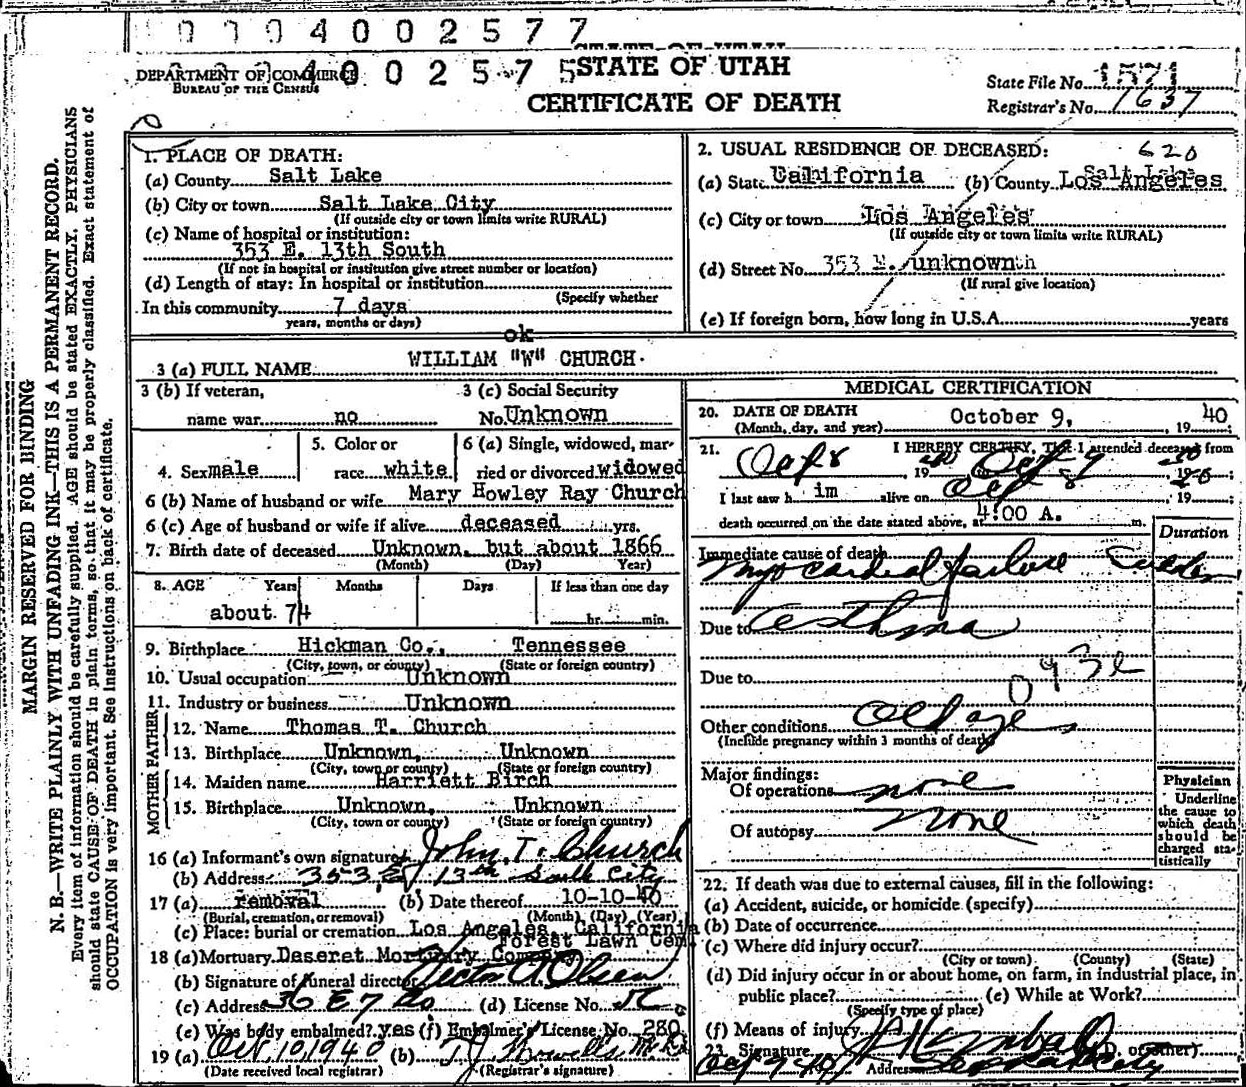 0 0 0 4 0 0 2 5 7 7
STATE OF UTAH
4 0 0 2 5 7 5
DEPARTMENT OF COMMERCE
BUREAU OF THE CENSUS
STATE OF UTAH
CERTIFICATE OF DEATH
State File No. 1571
Registrar's No. 1637
MARGIN RESERVED FOR BINDING
N. B.—WRITE PLAINLY WITH UNFADING INK—THIS IS A PERMANENT RECORD.
Every item of information should be carefully supplied. AGE should be stated EXACTLY. PHYSICIANS
should state CAUSE OF DEATH in plain terms, so that it may be properly classified. Exact statement of
OCCUPATION is very important. See instructions on back of certificate.
1. PLACE OF DEATH:
(a) County Salt Lake
(b) City or town Salt Lake City
(If outside city or town limits write RURAL)
(c) Name of hospital or institution:
353 E. 13th South
(If not in hospital or institution give street number or location)
(d) Length of stay: In hospital or institution
(Specify whether
In this community 7 days
years, months or days)
2. USUAL RESIDENCE OF DECEASED: 620
(a) State California (b) County Los Angeles
(c) City or town Los Angeles
(If outside city or town limits write RURAL)
(d) Street No. 353 E. unknown
(If rural give location)
(e) If foreign born, how long in U.S.A. years
ok
3 (a) FULL NAME WILLIAM "W" CHURCH
3 (b) If veteran,
name war no
3 (c) Social Security
No. Unknown
4. Sex male
5. Color or
race white
6 (a) Single, widowed, mar-
ried or divorced widowed
6 (b) Name of husband or wife Mary Howley Ray Church
6 (c) Age of husband or wife if alive deceased yrs.
7. Birth date of deceased Unknown, but about 1866
(Month) (Day) Year)
8. AGE Years Months Days If less than one day
about 74 hr. min.
9. Birthplace Hickman Co., Tennessee
(City, town, or county) (State or foreign country)
10. Usual occupation Unknown
11. Industry or business Unknown
FATHER
12. Name Thomas T. Church
13. Birthplace Unknown, Unknown
(City, town or county) (State or foreign country)
MOTHER
14. Maiden name Harriett Birch
15. Birthplace Unknown, Unknown
(City, town or county) (State or foreign country)
16 (a) Informant's own signature John T. Church
(b) Address 353 E 13th South City
17 (a) removal (b) Date thereof 10-10-40
(Burial, cremation, or removal) (Month) (Day) (Year)
(c) Place: burial or cremation Los Angeles, California
Forest Lawn Cem
18 (a) Mortuary Deseret Mortuary Company
(b) Signature of funeral director Victor A. Olsen
(c) Address 36 E 7 So (d) License No.
(e) Was body embalmed? yes (f) Embalmer's License No. 280
19 (a) Oct. 10, 1940 (b)
(Date received local registrar) (Registrar's signature)
MEDICAL CERTIFICATION
20. DATE OF DEATH October 9, 19 40
(Month, day, and year)
21. I HEREBY CERTIFY, That I attended deceased from
Oct 8 19 40 to Oct 9 19 40
I last saw him alive on Oct 8 19 40
death occurred on the date stated above, at 4:00 A. m.
Duration
Immediate cause of death
Myocardial failure Sudden
Due to Asthma
Due to
Other conditions Old age
(Include pregnancy within 3 months of death)
Major findings:
Of operations none
Of autopsy none
Physician
Underline
the cause to
which death
should be
charged sta-
tistically
22. If death was due to external causes, fill in the following:
(a) Accident, suicide, or homicide (specify)
(b) Date of occurrence
(c) Where did injury occur?
(City or town) (County) (State)
(d) Did injury occur in or about home, on farm, in industrial place, in
public place? (e) While at Work?
(Specify type of place)
(f) Means of injury
23. Signature Kimball (M. D. or other)
Oct 9-40 Address